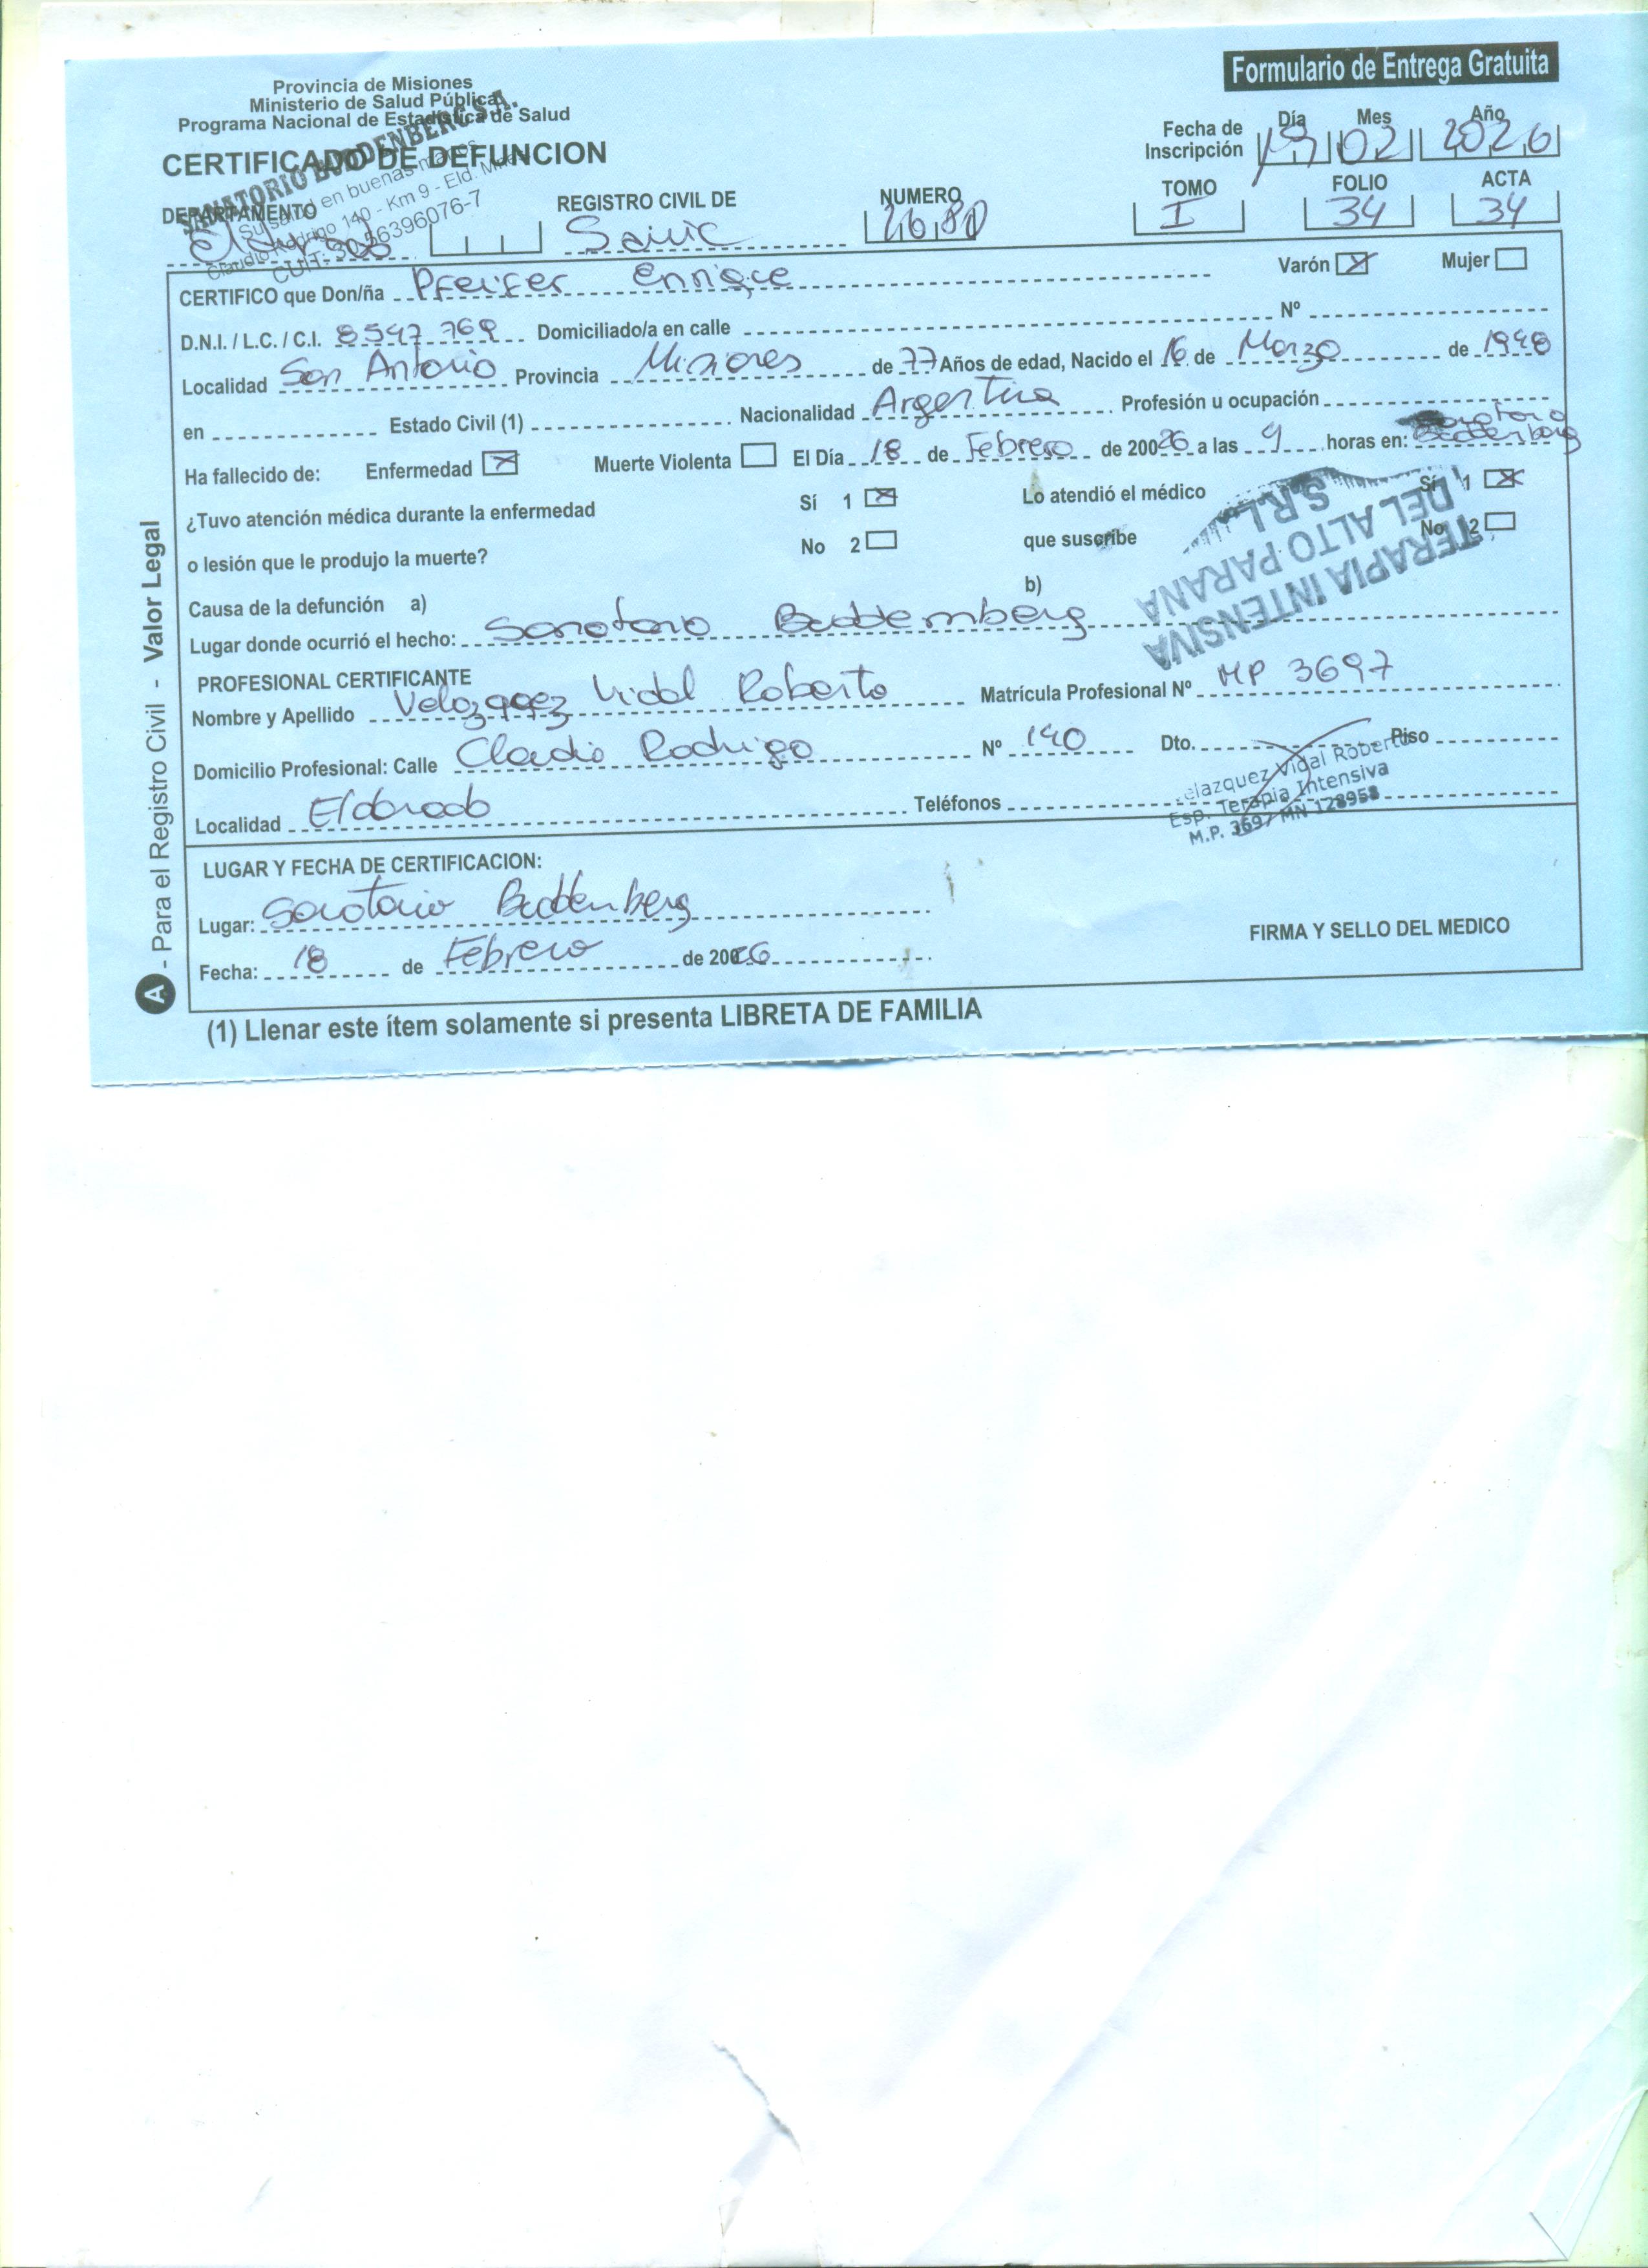 Formulario de Entrega Gratuita
Provincia de Misiones
Ministerio de Salud Pública
Programa Nacional de Estadística de Salud
CERTIFICADO DE DEFUNCION
SANATORIO BUDDENBERG S.A.
Su salud en buenas manos
Claudio Rodrigo 140 - Km 9 - Eld. Mnes.
CUIT: 30-56396076-7
Fecha de Inscripción Día 19 Mes 02 Año 2026
DEPARTAMENTO REGISTRO CIVIL DE NUMERO TOMO I FOLIO 34 ACTA 34
CERTIFICO que Don/ña Pfeifer Enrique Varón X Mujer
D.N.I. / L.C. / C.I. 8547769 Domiciliado/a en calle Nº
Localidad San Antonio Provincia Misiones de 77 Años de edad, Nacido el 16 de Marzo de 1948
en Estado Civil (1) Nacionalidad Argentina Profesión u ocupación
Ha fallecido de: Enfermedad X Muerte Violenta El Día 18 de Febrero de 20026 a las 9 horas en: Sanatorio Buddenberg
¿Tuvo atención médica durante la enfermedad Sí 1 X Lo atendió el médico Sí 1 X
o lesión que le produjo la muerte? No 2 que suscribe No 2
Causa de la defunción a) b)
Lugar donde ocurrió el hecho: Sanatorio Buddemberg
TERAPIA INTENSIVA
DEL ALTO PARANA
S.R.L.
PROFESIONAL CERTIFICANTE
Nombre y Apellido Velazquez Vidal Roberto Matrícula Profesional Nº MP 3697
Domicilio Profesional: Calle Claudio Rodrigo Nº 140 Dto. Piso
Localidad Eldorado Teléfonos
Velazquez Vidal Roberto
Esp. Terapia Intensiva
M.P. 3697 MN 128958
LUGAR Y FECHA DE CERTIFICACION:
Lugar: Sanatorio Buddenberg
FIRMA Y SELLO DEL MEDICO
Fecha: 18 de Febrero de 20026
(1) Llenar este ítem solamente si presenta LIBRETA DE FAMILIA
A - Para el Registro Civil - Valor Legal